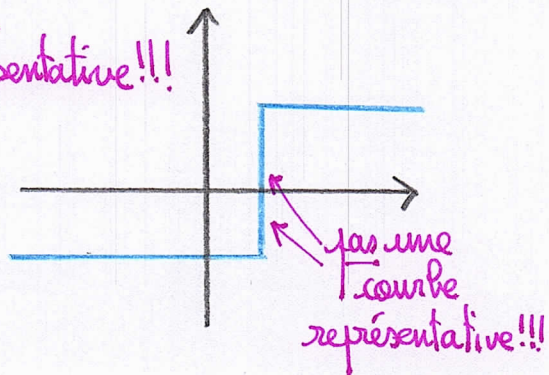 sentative!!!
pas une
courbe
représentative!!!